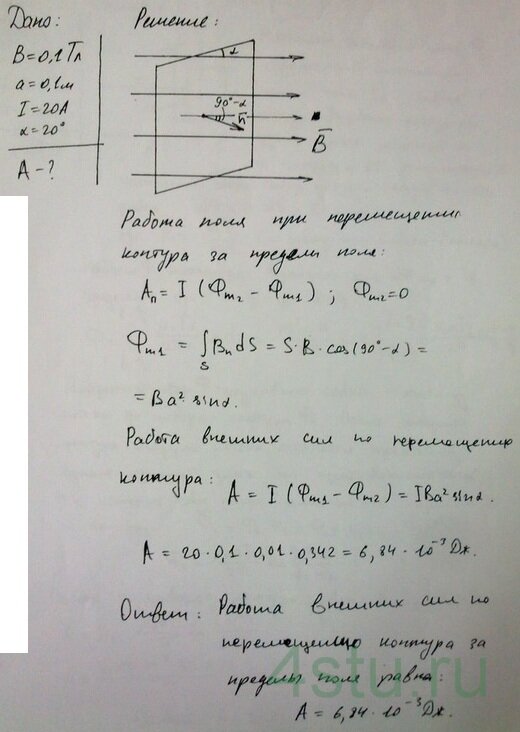 Дано:
Решение:
B=0,1Тл
a=0,1м
I=20А
α=20°
A-?
α
90°-α
n̄
B̄
Работа поля при перемещении
контура за пределы поля:
Aп = I (Фm2 - Фm1) ; Фm2=0
Фm1 = ∫s BndS = S·B·cos(90°-α) =
= Ba² sinα.
Работа внешних сил по перемещению
контура:
A = I (Фm1 - Фm2) = IBa² sinα.
A = 20·0,1·0,01·0,342 = 6,84·10⁻³ Дж.
Ответ: Работа внешних сил по
перемещению контура за
пределы поля равна:
4stu.ru
A = 6,84·10⁻³ Дж.